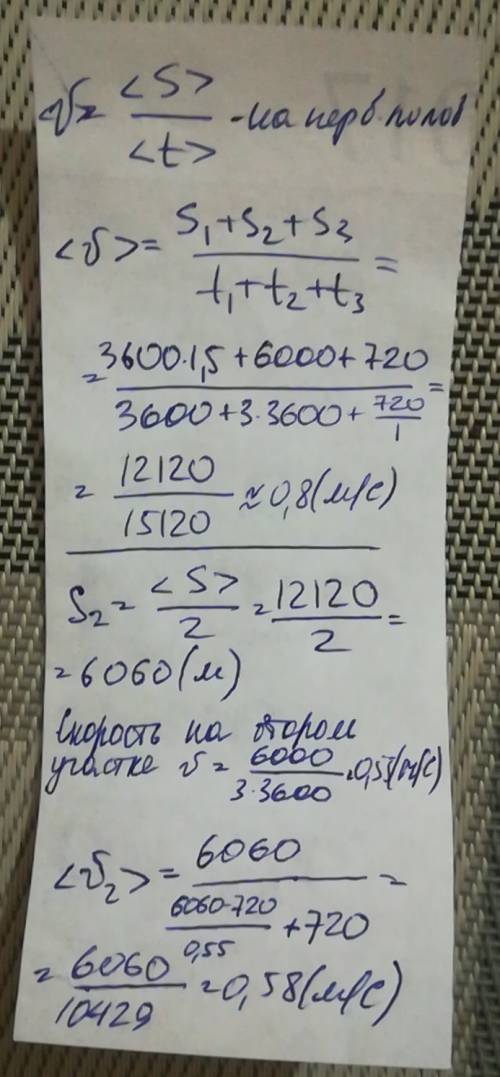 <v> = <S> / <t> - на перв. полов
<v> = S₁+S₂+S₃ / t₁+t₂+t₃ =
= 3600·1,5+6000+720 / 3600+3·3600+720/1 =
= 12120 / 15120 ≈ 0,8 (м/с)
S₂ = <S> / 2 = 12120 / 2 =
= 6060 (м)
Скорость на втором
участке v = 6000 / 3·3600 = 0,55 (м/с)
<v₂> = 6060 / (6060-720 / 0,55 + 720) =
= 6060 / 10429 = 0,58 (м/с)